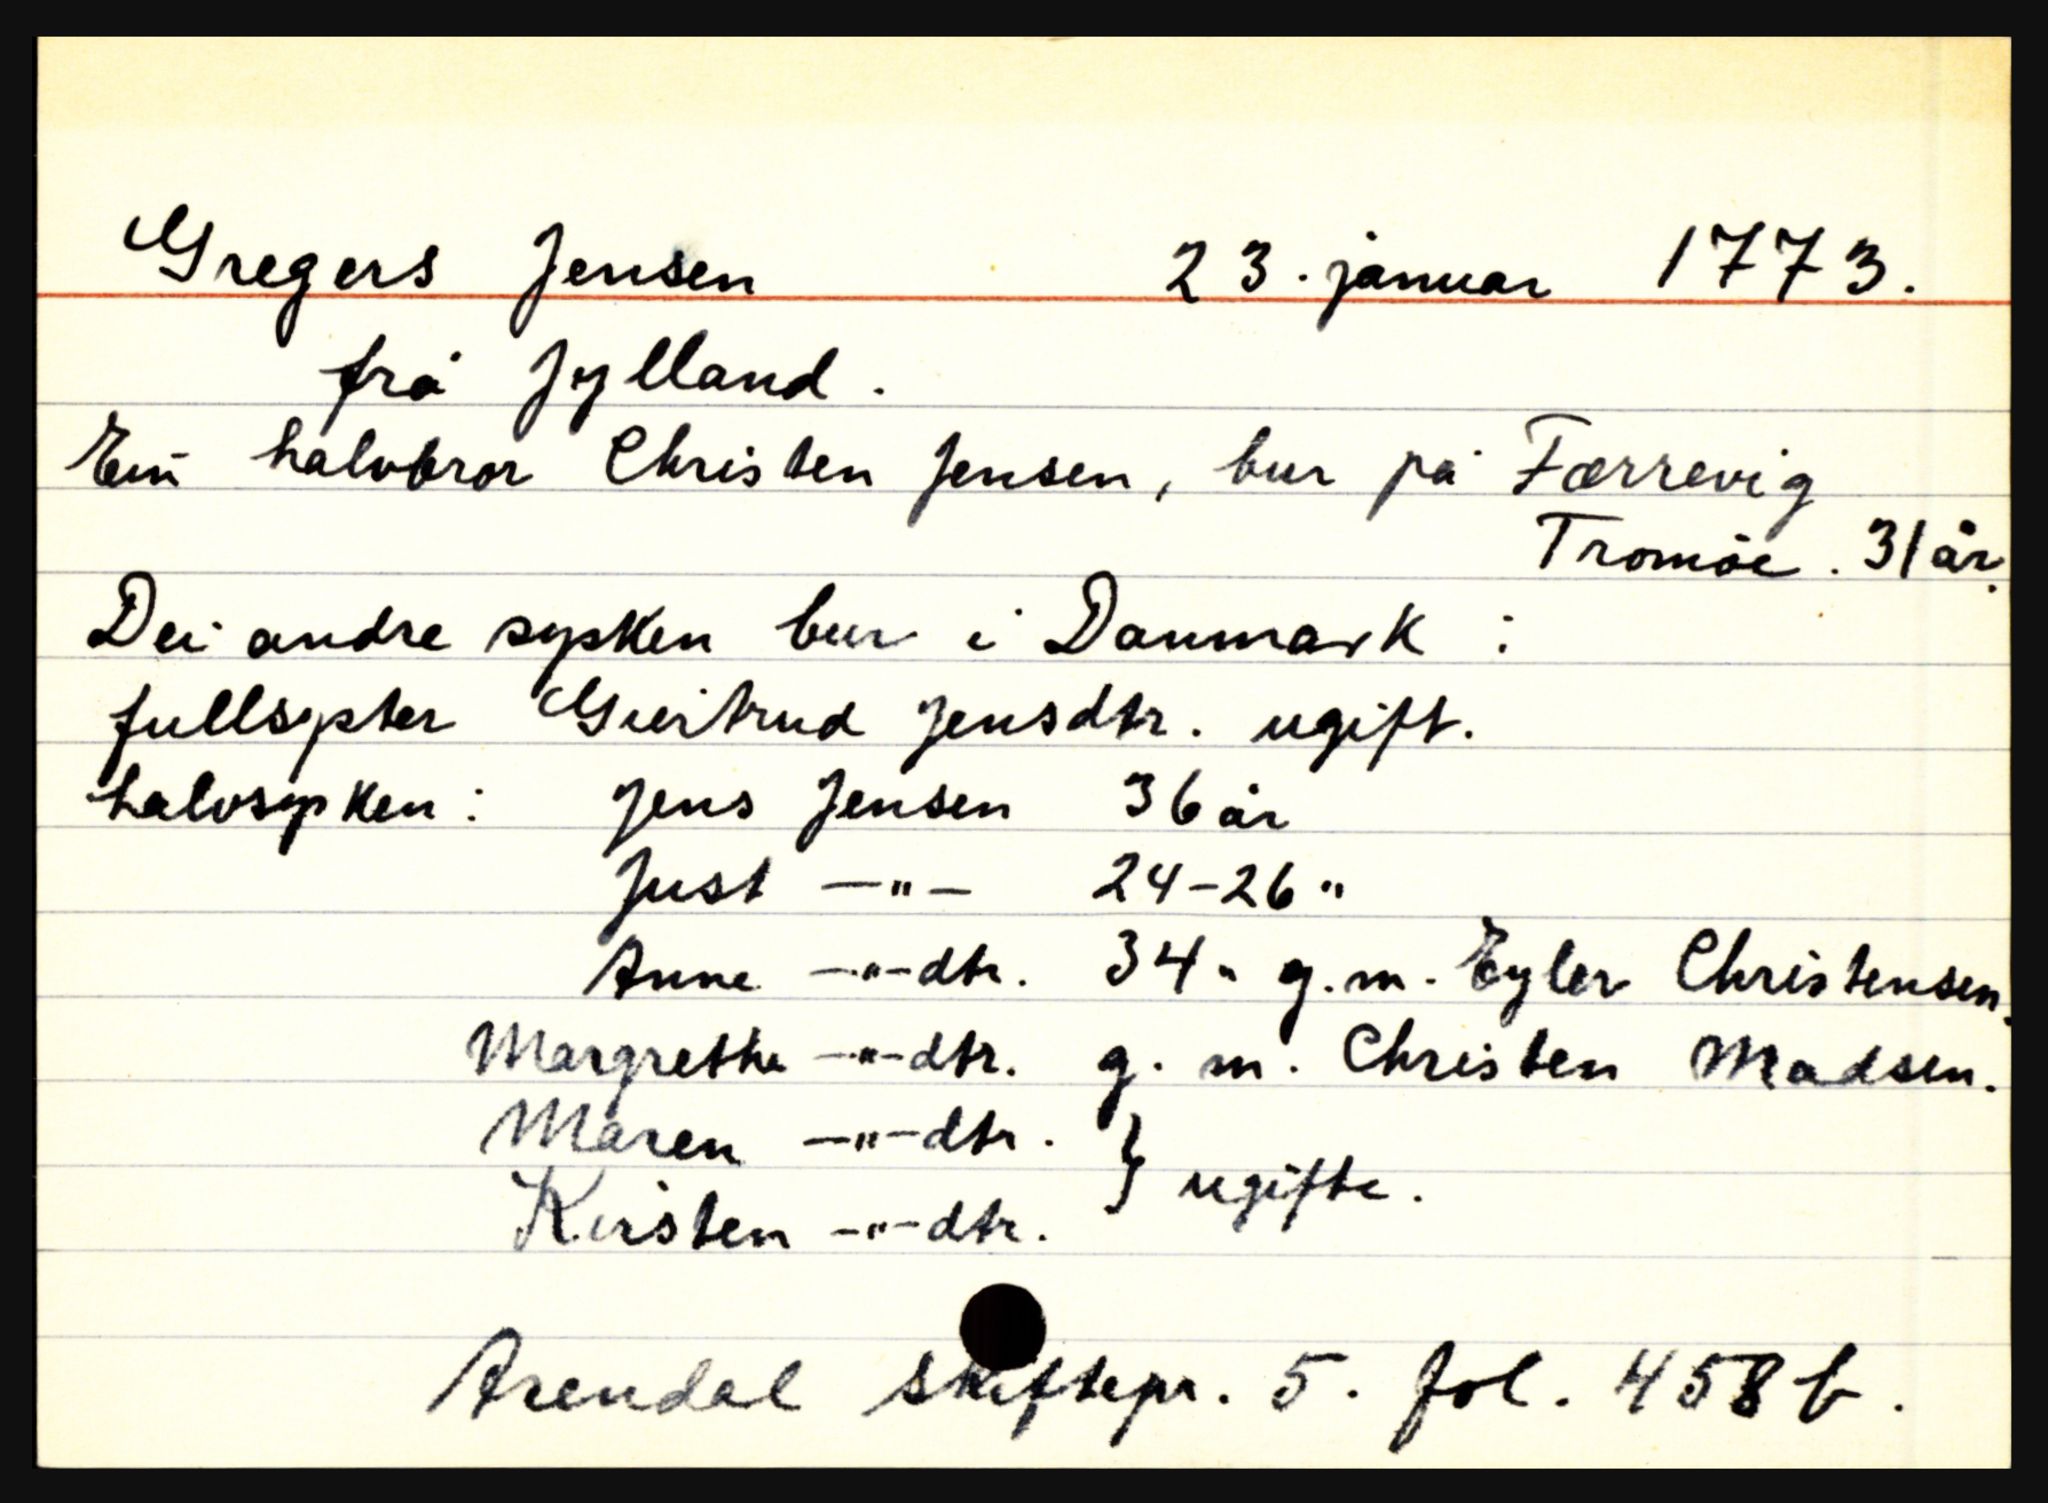 Gregers Jensen 23. januar 1773.
frå Jylland.
Ein halvbror Christen Jensen, bur på Færrevig
Tromøe. 31 år.
Dei andre sysken bur i Danmark :
fullsyster Giertrud Jensdtr. ugift.
halvsysken : Jens Jensen 36 år
Just —"— 24-26 "
Anne —"—dtr. 34 " g.m. Eyler Christensen.
Margrethe —"—dtr. g. m. Christen Madsen.
Maren —"—dtr. }
Kirsten —"—dtr. } ugifte.
Arendal skiftepr. 5. fol. 458 b.